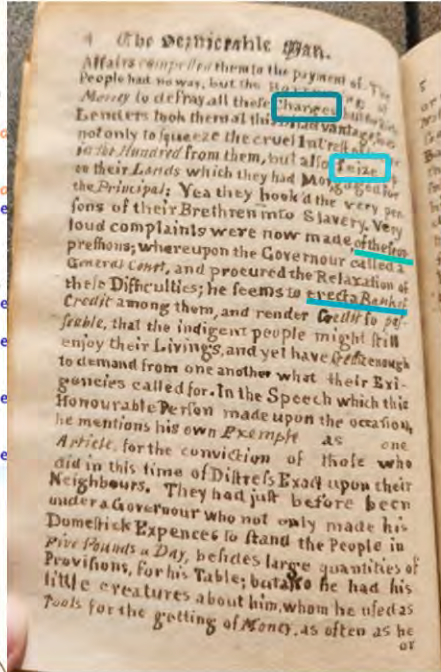 4 The Deplorable Man.
Affairs compelled them to the payment of. The
People had no way, but the
Money to defray all these Charges
Lenders took them at this advantage
not only to squeeze the cruel Int'rest of
in the Hundred from them, but also Seize
on their Lands which they had Mortgaged for
the Principal; Yea they hook'd the very per-
sons of their Brethren into Slavery. Very
loud complaints were now made, of these op-
pressions; whereupon the Governour called a
General Court, and procured the Relaxation of
these Difficulties; he seems to erect a Bank of
Credit among them, and render Credit so pas-
seable, that the indigent people might still
enjoy their Livings, and yet have Credit enough
to demand from one another what their Exi-
gencies called for. In the Speech which this
Honourable Person made upon the occasion,
he mentions his own Exemple as one
Article, for the conviction of those who
did in this time of Distress Exact upon their
Neighbours. They had just before been
under a Governour who not only made his
Domestick Expences to stand the People in
Five Pounds a Day, besides large quantities of
Provisions, for his Table; but also he had his
little creatures about him, whom he used as
Tools for the getting of Money, as often as he
or